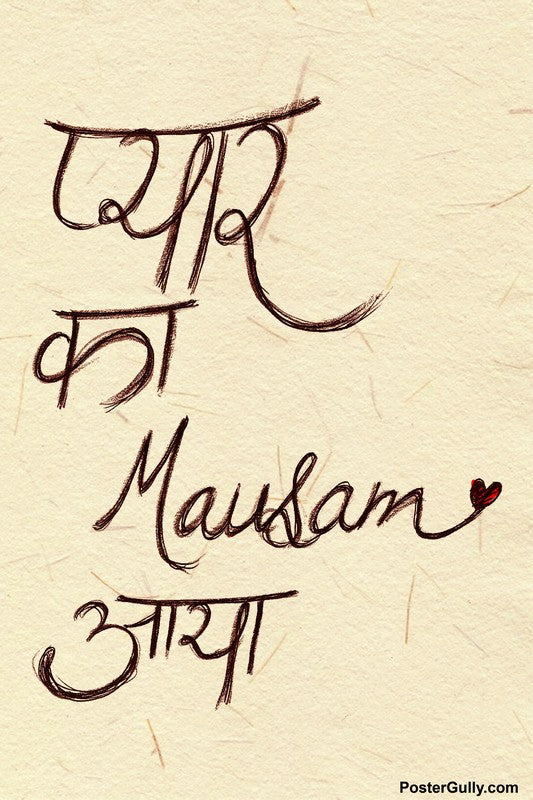 प्यार
का
Mausam
आया
PosterGully.com